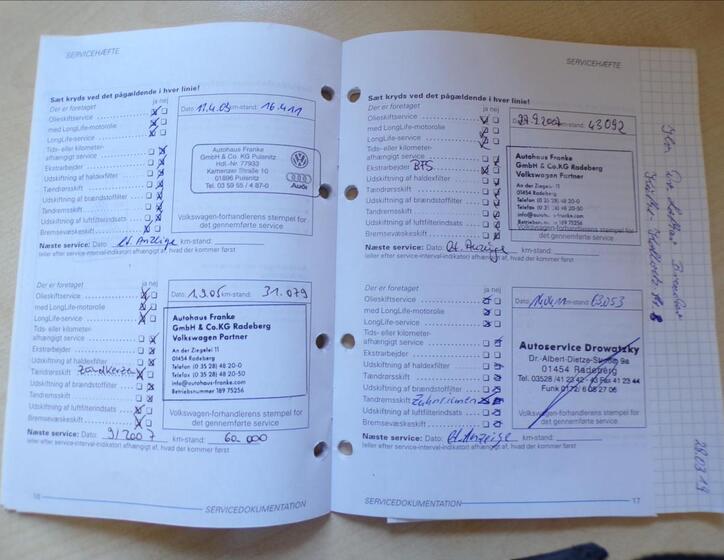 SERVICEHÆFTE
Sæt kryds ved det pågældende i hver linie!
Der er foretaget ja nej
Olieskiftservice
med LongLife-motorolie
LongLife-service
Tids- eller kilometer-
afhængigt service
Ekstrarbejder
Udskiftning af haldexfilter
Tændrørsskift
Udskiftning af brændstoffilter
Tandremsskift
Udskiftning af luftfilterindsats
Bremsevæskeskift
Dato: 11.4.03 km-stand: 16.411
Autohaus Franke
GmbH & Co. KG Pulsnitz
Hdl.-Nr. 77933
Kamenzer Straße 10
01896 Pulsnitz
Tel. 03 59 55 / 4 87-0
Audi
Volkswagen-forhandlerens stempel for
det gennemførte service
Næste service: Dato: lt. Anzeige km-stand:
(eller efter service-interval-indikator) afhængigt af, hvad der kommer først
Der er foretaget ja nej
Olieskiftservice
med LongLife-motorolie
LongLife-service
Tids- eller kilometer-
afhængigt service
Ekstrarbejder
Udskiftning af haldexfilter
Tændrørsskift Zündkerzen
Udskiftning af brændstoffilter
Tandremsskift
Udskiftning af luftfilterindsats
Bremsevæskeskift
Dato: 1.9.05 km-stand: 31.079
Autohaus Franke
GmbH & Co.KG Radeberg
Volkswagen Partner
An der Ziegelei 11
01454 Radeberg
Telefon (0 35 28) 48 20-0
Telefax (0 35 28) 48 20-50
info@autohaus-franke.com
Betriebsnummer 189 75256
Volkswagen-forhandlerens stempel for
det gennemførte service
Næste service: Dato: 9/2007 km-stand: 60.000
(eller efter service-interval-indikator) afhængigt af, hvad der kommer først
16
SERVICEDOKUMENTATION
SERVICEHÆFTE
Sæt kryds ved det pågældende i hver linie!
Der er foretaget ja nej
Olieskiftservice
med LongLife-motorolie
LongLife-service
Tids- eller kilometer-
afhængigt service
Ekstrarbejder BTS
Udskiftning af haldexfilter
Tændrørsskift
Udskiftning af brændstoffilter
Tandremsskift
Udskiftning af luftfilterindsats
Bremsevæskeskift
Dato: 27.9.2007 km-stand: 43092
Autohaus Franke
GmbH & Co.KG Radeberg
Volkswagen Partner
An der Ziegelei 11
01454 Radeberg
Telefon (0 35 28) 48 20-0
Telefax (0 35 28) 48 20-50
info@autohaus-franke.com
Betriebsnummer 189 75256
Volkswagen-forhandlerens stempel for
det gennemførte service
Næste service: Dato: lt. Anzeige km-stand:
(eller efter service-interval-indikator) afhængigt af, hvad der kommer først
Der er foretaget ja nej
Olieskiftservice
med LongLife-motorolie
LongLife-service
Tids- eller kilometer-
afhængigt service
Ekstrarbejder
Udskiftning af haldexfilter
Tændrørsskift
Udskiftning af brændstoffilter
Tandremsskift Zahnriemen
Udskiftning af luftfilterindsats
Bremsevæskeskift
Dato: km-stand: 63.053
Autoservice Drowatzky
Dr.-Albert-Dietze-Straße 9a
01454 Radeberg
Tel. 03528 / 41 23 42 - 43 Fax 41 23 44
Funk 0172/ 6 08 27 06
Volkswagen-forhandlerens stempel for
det gennemførte service
Næste service: Dato: lt. Anzeige km-stand:
(eller efter service-interval-indikator) afhængigt af, hvad der kommer først
SERVICEDOKUMENTATION
17
28.03.19